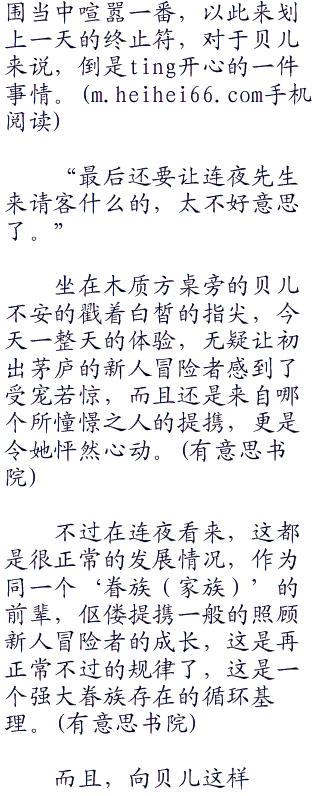 围当中喧嚣一番，以此来划
上一天的终止符，对于贝儿
来说，倒是ting开心的一件
事情。(m.heihei66.com手机
阅读)
“最后还要让连夜先生
来请客什么的，太不好意思
了。”
坐在木质方桌旁的贝儿
不安的戳着白皙的指尖，今
天一整天的体验，无疑让初
出茅庐的新人冒险者感到了
受宠若惊，而且还是来自哪
个所憧憬之人的提携，更是
令她怦然心动。(有意思书
院)
不过在连夜看来，这都
是很正常的发展情况，作为
同一个‘眷族（家族）’的
前辈，伛偻提携一般的照顾
新人冒险者的成长，这是再
正常不过的规律了，这是一
个强大眷族存在的循环基
理。(有意思书院)
而且，向贝儿这样